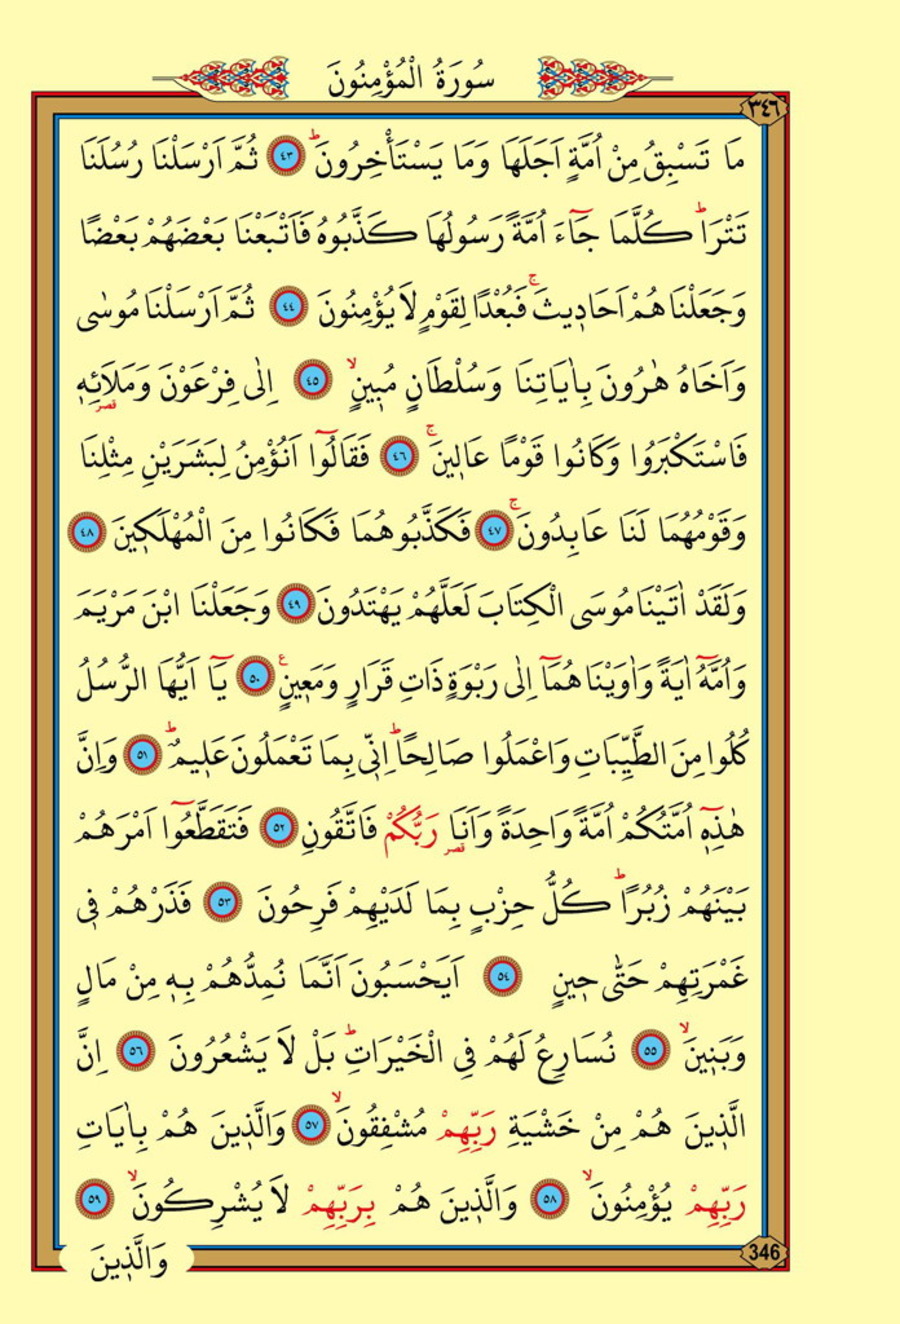 سُورَةُ الْمُؤْمِنُونَ
٣٤٦
مَا تَسْبِقُ مِنْ اُمَّةٍ اَجَلَهَا وَمَا يَسْتَأْخِرُونَۜ ﴿٤٣﴾ ثُمَّ اَرْسَلْنَا رُسُلَنَا
تَتْرَاۜ كُلَّمَا جَٓاءَ اُمَّةً رَسُولُهَا كَذَّبُوهُ فَاَتْبَعْنَا بَعْضَهُمْ بَعْضًا
وَجَعَلْنَاهُمْ اَحَاد۪يثَۚ فَبُعْدًا لِقَوْمٍ لَا يُؤْمِنُونَ ﴿٤٤﴾ ثُمَّ اَرْسَلْنَا مُوسٰى
وَاَخَاهُ هٰرُونَ بِاٰيَاتِنَا وَسُلْطَانٍ مُب۪ينٍۙ ﴿٤٥﴾ اِلٰى فِرْعَوْنَ وَمَلَا۬ئِه۪
فَاسْتَكْبَرُوا وَكَانُوا قَوْمًا عَال۪ينَۚ ﴿٤٦﴾ فَقَالُٓوا اَنُؤْمِنُ لِبَشَرَيْنِ مِثْلِنَا
وَقَوْمُهُمَا لَنَا عَابِدُونَۚ ﴿٤٧﴾ فَكَذَّبُوهُمَا فَكَانُوا مِنَ الْمُهْلَك۪ينَ ﴿٤٨﴾
وَلَقَدْ اٰتَيْنَا مُوسَى الْكِتَابَ لَعَلَّهُمْ يَهْتَدُونَ ﴿٤٩﴾ وَجَعَلْنَا ابْنَ مَرْيَمَ
وَاُمَّهُٓ اٰيَةً وَاٰوَيْنَاهُمَٓا اِلٰى رَبْوَةٍ ذَاتِ قَرَارٍ وَمَع۪ينٍ۟ ﴿٥٠﴾ يَٓا اَيُّهَا الرُّسُلُ
كُلُوا مِنَ الطَّيِّبَاتِ وَاعْمَلُوا صَالِحًاۜ اِنّ۪ي بِمَا تَعْمَلُونَ عَل۪يمٌۜ ﴿٥١﴾ وَاِنَّ
هٰذِه۪ٓ اُمَّتُكُمْ اُمَّةً وَاحِدَةً وَاَنَا۬ رَبُّكُمْ فَاتَّقُونِ ﴿٥٢﴾ فَتَقَطَّعُٓوا اَمْرَهُمْ
بَيْنَهُمْ زُبُرًاۜ كُلُّ حِزْبٍ بِمَا لَدَيْهِمْ فَرِحُونَ ﴿٥٣﴾ فَذَرْهُمْ ف۪ي
غَمْرَتِهِمْ حَتّٰى ح۪ينٍ ﴿٥٤﴾ اَيَحْسَبُونَ اَنَّمَا نُمِدُّهُمْ بِه۪ مِنْ مَالٍ
وَبَن۪ينَۙ ﴿٥٥﴾ نُسَارِعُ لَهُمْ فِي الْخَيْرَاتِۜ بَلْ لَا يَشْعُرُونَ ﴿٥٦﴾ اِنَّ
الَّذ۪ينَ هُمْ مِنْ خَشْيَةِ رَبِّهِمْ مُشْفِقُونَۙ ﴿٥٧﴾ وَالَّذ۪ينَ هُمْ بِاٰيَاتِ
رَبِّهِمْ يُؤْمِنُونَۙ ﴿٥٨﴾ وَالَّذ۪ينَ هُمْ بِرَبِّهِمْ لَا يُشْرِكُونَۙ ﴿٥٩﴾
346
وَالَّذ۪ينَ